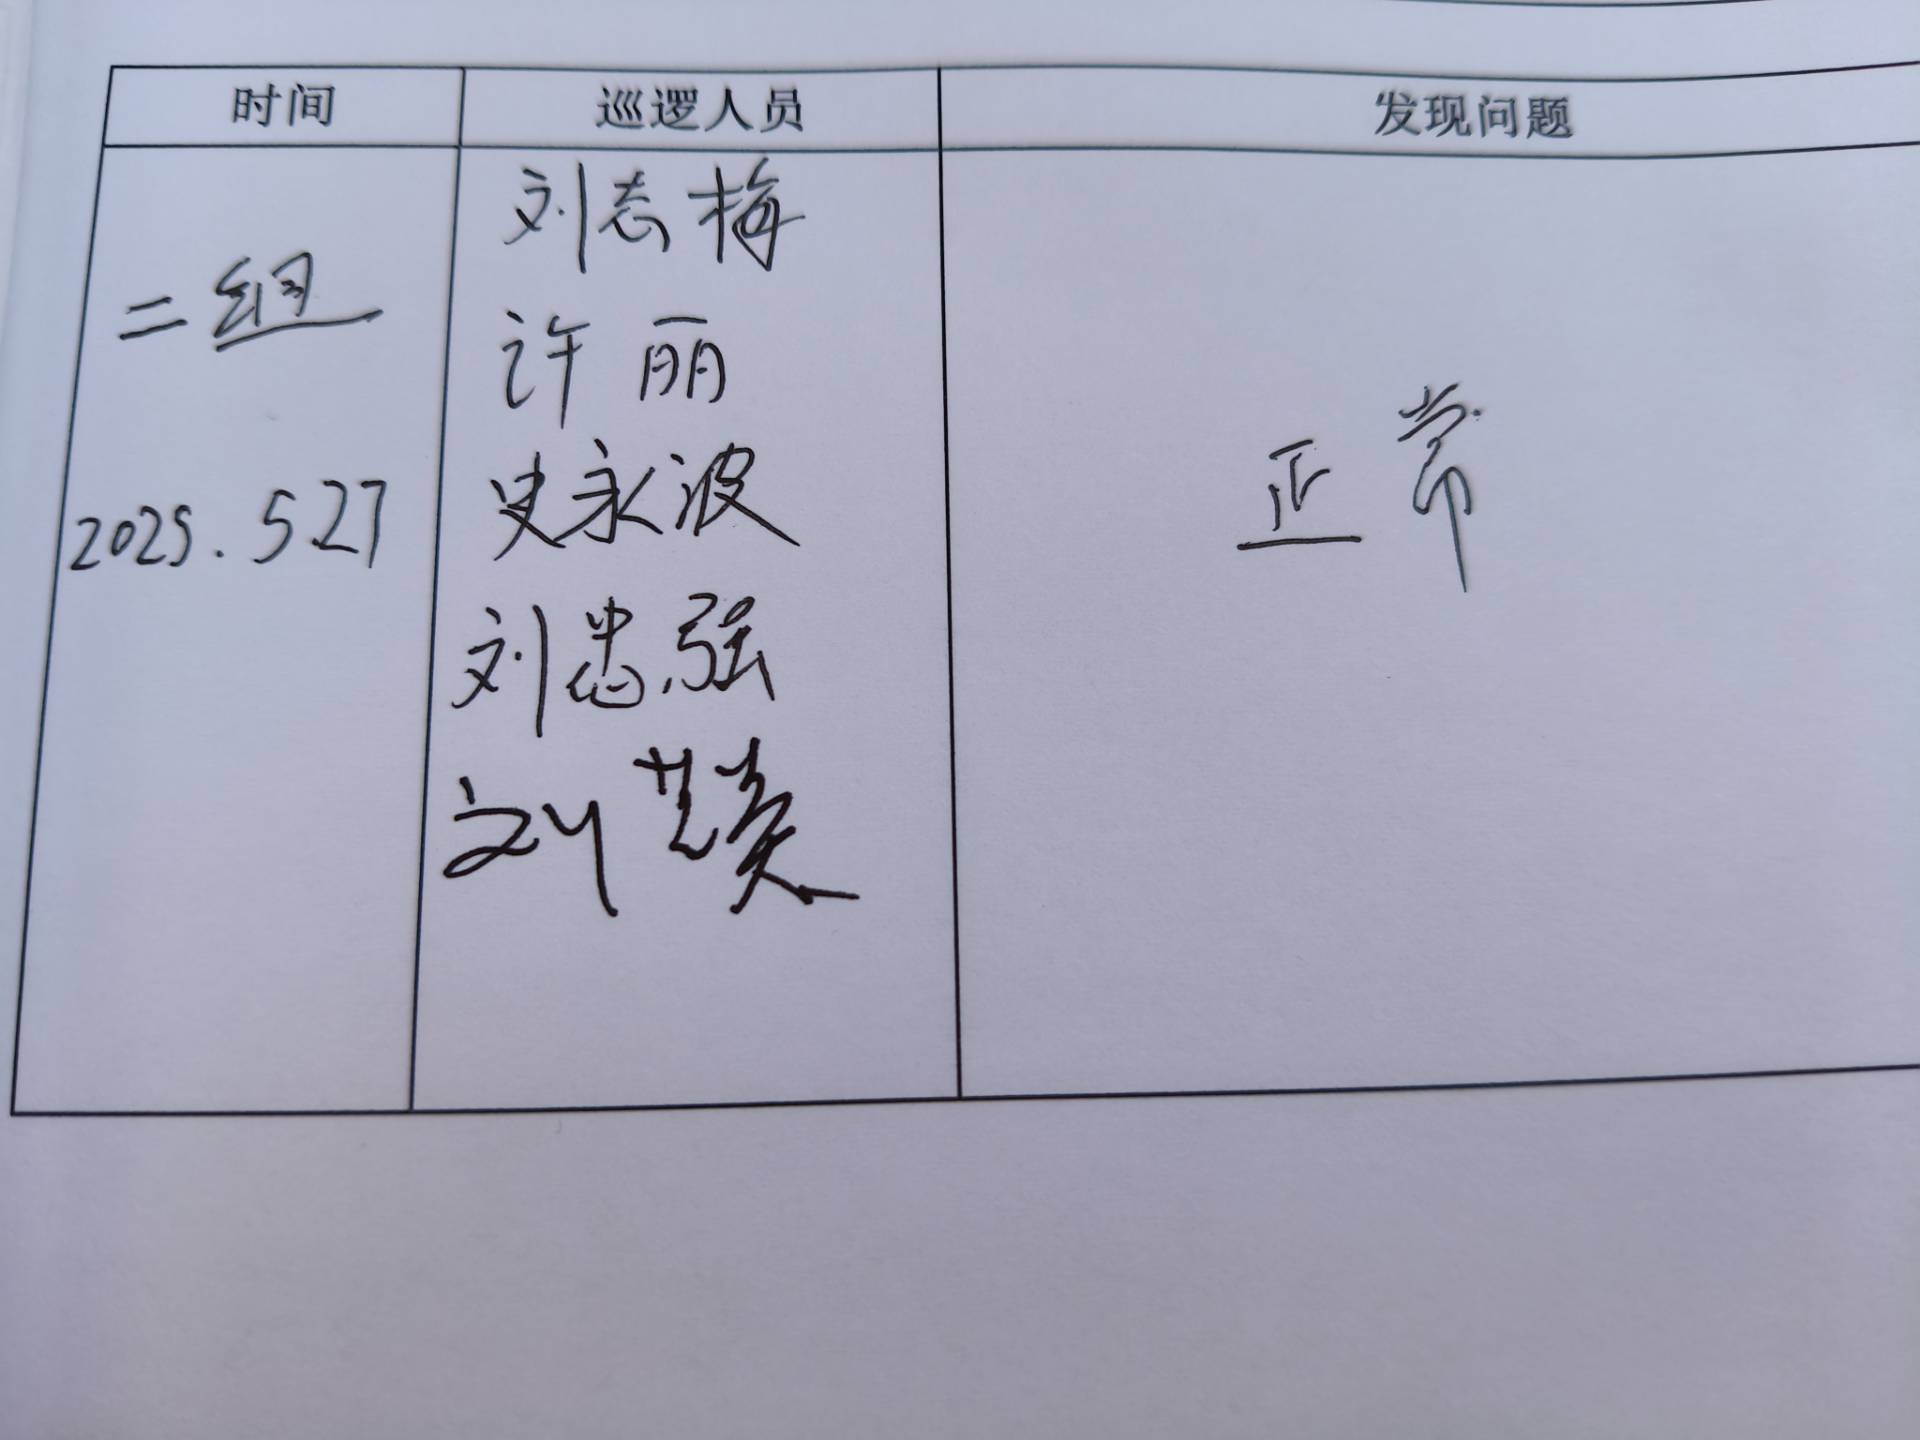 时间 巡逻人员 发现问题
二组
2025.5.27
刘志梅
许丽
史永波
刘忠强
刘
正常